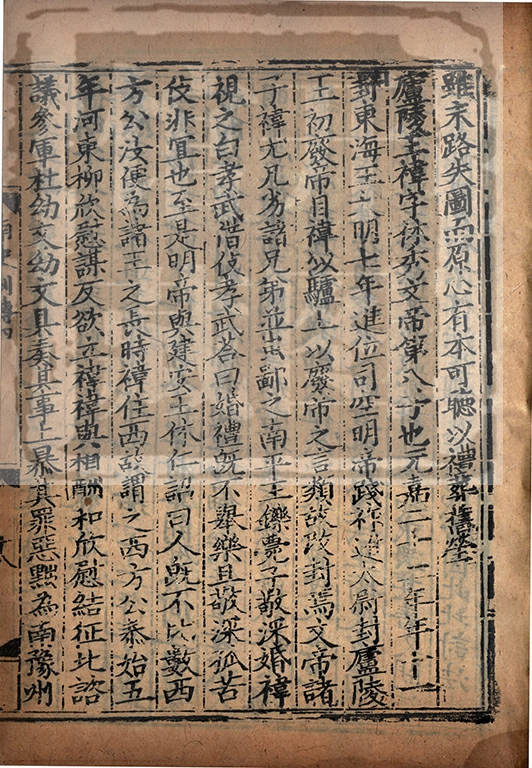 雖末路失圖而原心有本可聽以禮葬舊塋
廬陵王禕字休秀文帝第八子也元嘉二十二年年十一
封東海王大明七年進位司空明帝踐祚進太尉封廬陵
王初廢帝目禕以驢上以廢帝之言類故改封焉文帝諸
子禕尤凡劣諸兄弟並出鄙之南平王鑠薨子敬深婚禕
視之白孝武借伎孝武荅曰婚禮旣不舉樂且敬深孤苦
伎非宜也至是明帝與建安王休仁詔曰人旣不比數西
方公汝便為諸王之長時禕住西故謂之西方公泰始五
年河東柳欣慰謀反欲立禕禕與相酬和欣慰結征北諮
議參軍杜幼文幼文具奏其事上暴其罪惡黜為南豫州